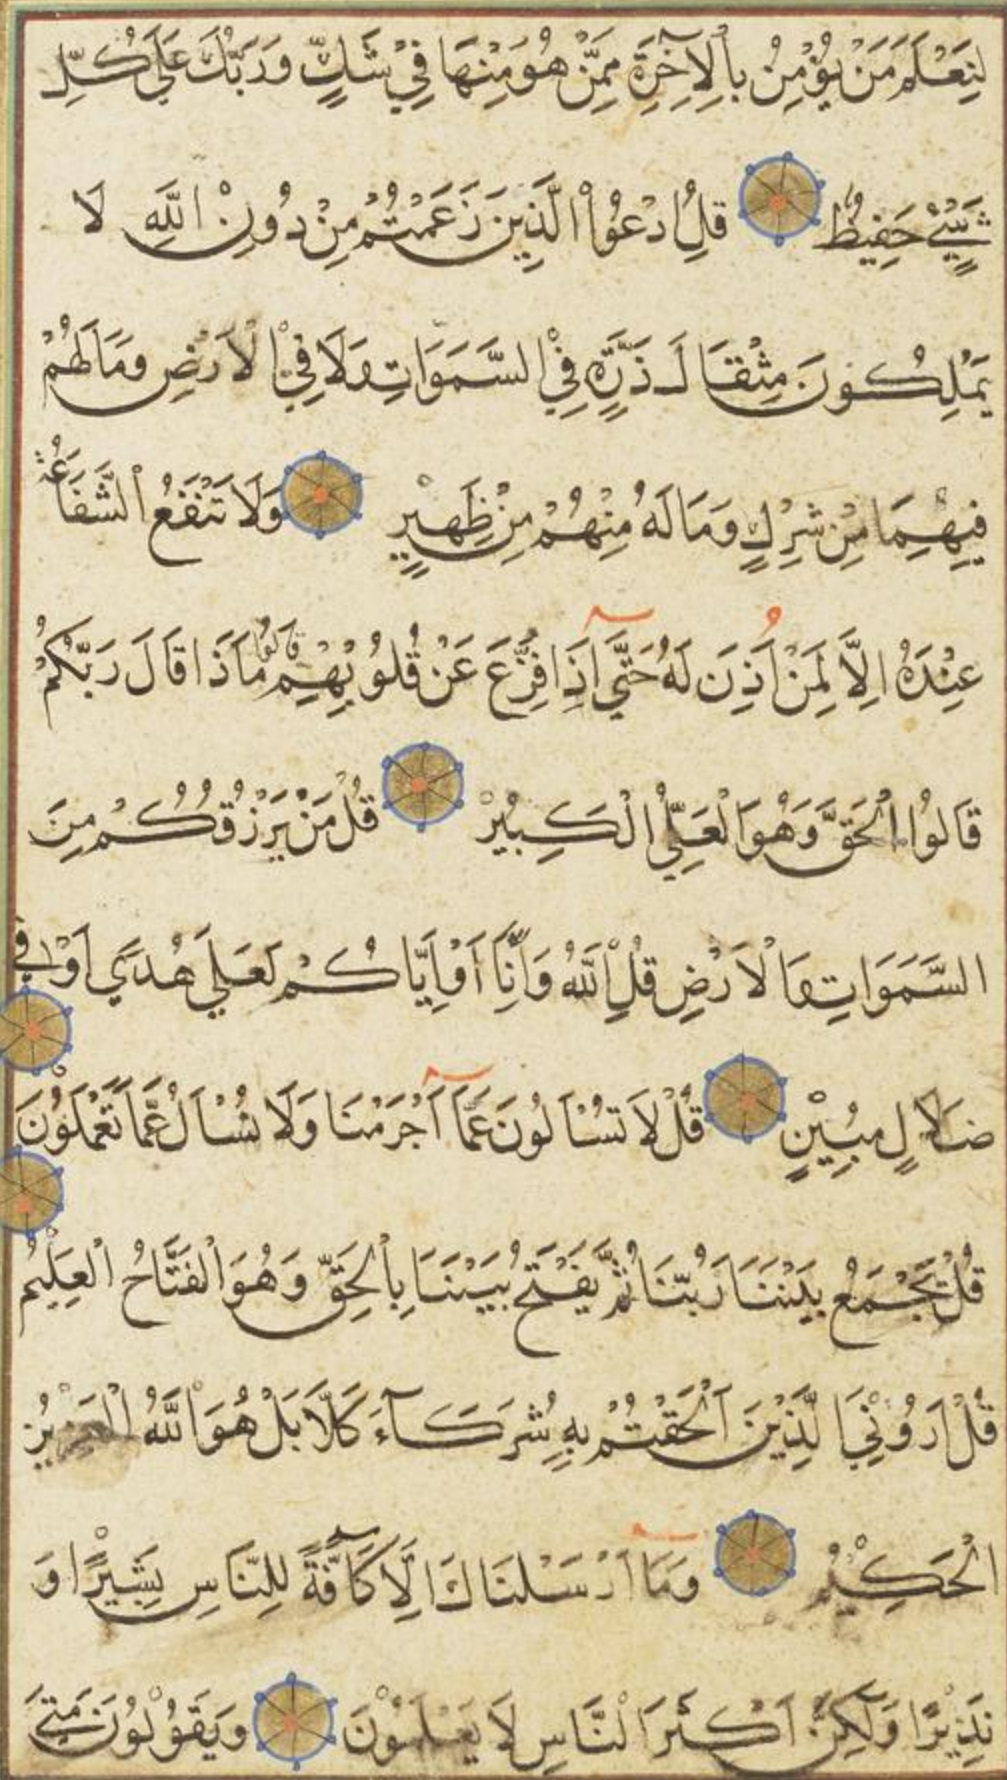 لِنَعْلَمَ مَنْ يُؤْمِنُ بِالْاٰخِرَةِ مِمَّنْ هُوَ مِنْهَا فِيْ شَكٍّ وَرَبُّكَ عَلٰي كُلِّ
شَيْءٍ حَفِيظٌ قُلِ ادْعُوا الَّذِينَ زَعَمْتُمْ مِنْ دُونِ اللَّهِ لَا
يَمْلِكُونَ مِثْقَالَ ذَرَّةٍ فِي السَّمَوَاتِ وَلَا فِي الْاَرْضِ وَمَا لَهُمْ
فِيْهِمَا مِنْ شِرْكٍ وَمَا لَهُ مِنْهُمْ مِنْ ظَهِيْرٍ وَلَا تَنْفَعُ الشَّفَاعَةُ
عِنْدَهُ اِلَّا لِمَنْ اَذِنَ لَهُ حَتَّي اِذَا فُزِّعَ عَنْ قُلُوبِهِمْ قَالُوا مَاذَا قَالَ رَبُّكُمْ
قَالُوا الْحَقَّ وَهُوَ الْعَلِيُّ الْكَبِيْرُ قُلْ مَنْ يَرْزُقُكُمْ مِنَ
السَّمَوَاتِ وَالْاَرْضِ قُلِ اللَّهُ وَاِنَّا اَوْ اِيَّاكُمْ لَعَلَي هُدًي اَوْ فِي
ضَلَالٍ مُبِيْنٍ قُلْ لَا تُسْاَلُونَ عَمَّا اَجْرَمْنَا وَلَا نُسْاَلُ عَمَّا تَعْمَلُوْنَ
قُلْ يَجْمَعُ بَيْنَنَا رَبُّنَا ثُمَّ يَفْتَحُ بَيْنَنَا بِالْحَقِّ وَهُوَ الْفَتَّاحُ الْعَلِيْمُ
قُلْ اَرُوْنِيَ الَّذِيْنَ اَلْحَقْتُمْ بِهِ شُرَكَآءَ كَلَّا بَلْ هُوَ اللَّهُ الْعَزِيْزُ
الْحَكِيْمُ وَمَا اَرْسَلْنَاكَ اِلَّا كَآفَّةً لِلنَّاسِ بَشِيْرًا وَ
نَذِيْرًا وَلٰكِنَّ اَكْثَرَ النَّاسِ لَا يَعْلَمُوْنَ وَيَقُوْلُوْنَ مَتَي